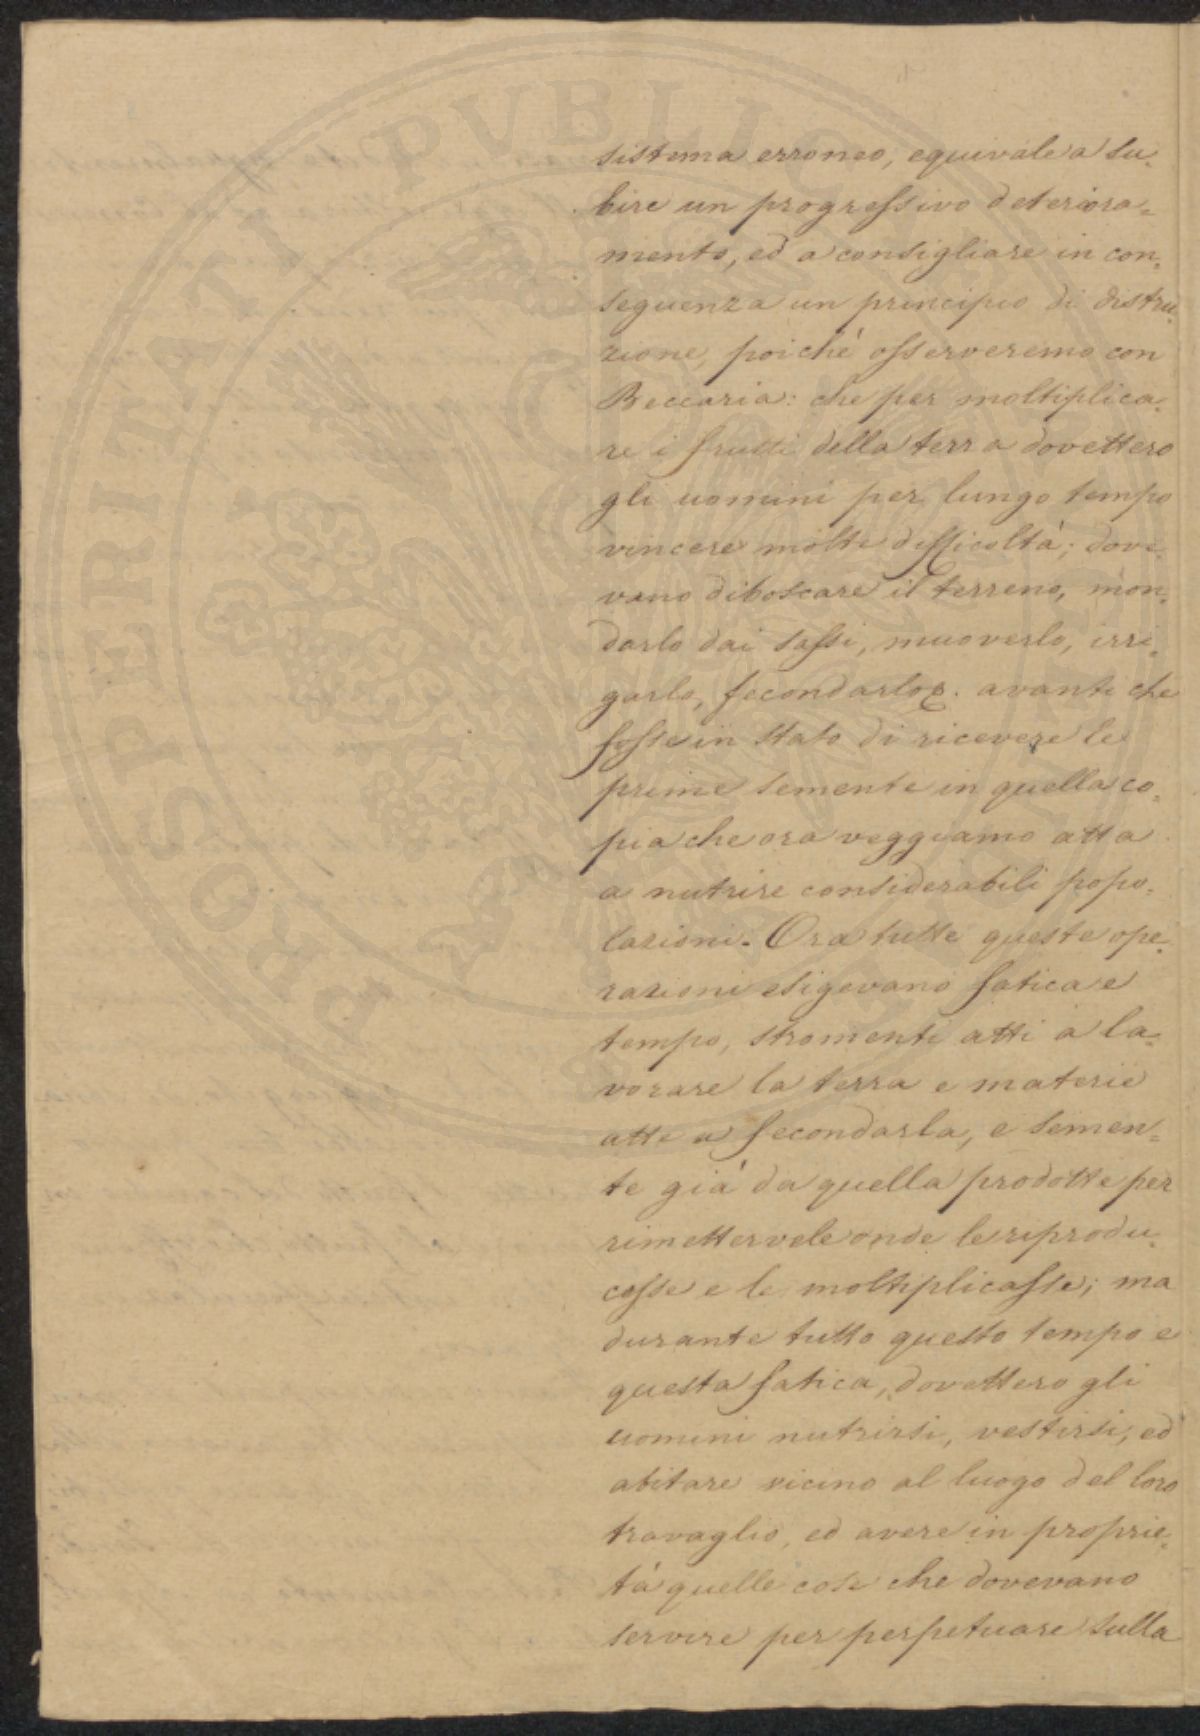 sistema erroneo, equivale a su-
bire un progressivo deteriora=
mento, ed a consigliare in con-
seguenza un principio di distru-
zione, poichè osserveremo con
Beccaria: che per moltiplica-
re i frutti della terra dovettero
gli uomini per lungo tempo
vincere molte difficoltà; dove-
vano diboscare il terreno, mon-
darlo dai sassi, muoverlo, irri-
garlo, fecondarlo &. avanti che
fosse in stato di ricevere le
prime semente in quella co-
pia che ora veggiamo atta
a nutrire considerabili popo-
lazioni. Ora tutte queste ope-
razioni esigevano fatica e
tempo, stromenti atti a la-
vorare la terra e materie
atte a fecondarla, e semen=
te già da quella prodotte per
rimettervele onde le riprodu-
cesse e le moltiplicasse; ma
durante tutto questo tempo e
questa fatica, dovettero gli
uomini nutrirsi, vestirsi, ed
abitare vicino al luogo del loro
travaglio, ed avere in proprie-
tà quelle cose che dovevano
servire per perpetuare sulla
PROSPERITATI PUBLICAE